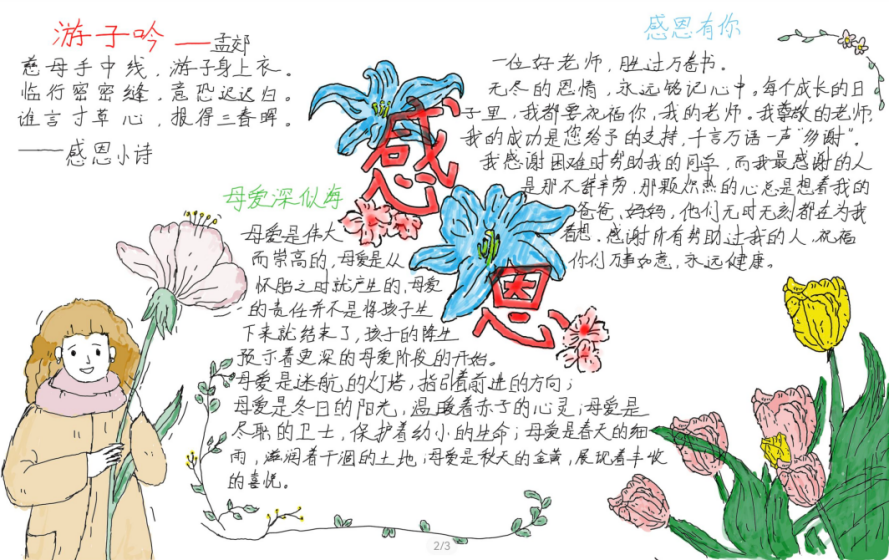 游子吟 ——孟郊
慈母手中线，游子身上衣。
临行密密缝，意恐迟迟归。
谁言寸草心，报得三春晖。
——感恩小诗
感恩
母爱深似海
母爱是伟大
而崇高的，母爱是从
怀胎之时就产生的，母爱
的责任并不是将孩子生
下来就结束了，孩子的降生
预示着更深的母爱阶段的开始。
母爱是迷航的灯塔，指引着前进的方向；
母爱是冬日的阳光，温暖着赤子的心灵；母爱是
尽职的卫士，保护着幼小的生命；母爱是春天的细
雨，滋润着干涸的土地；母爱是秋天的金黄，展现着丰收
的喜悦。
感恩有你
一位好老师，胜过万卷书。
无尽的恩情，永远铭记心中。每个成长的日
子里，我都要祝福你，我的老师。我尊敬的老师，
我的成功是您给予的支持，千言万语一声“多谢”。
我感谢困难时帮助我的同学，而我最感谢的人
是那不辞辛劳，那颗炽热的心总是想着我的
爸爸、妈妈，他们无时无刻都在为我
着想。感谢所有帮助过我的人，祝福
你们万事如意，永远健康。
2/3